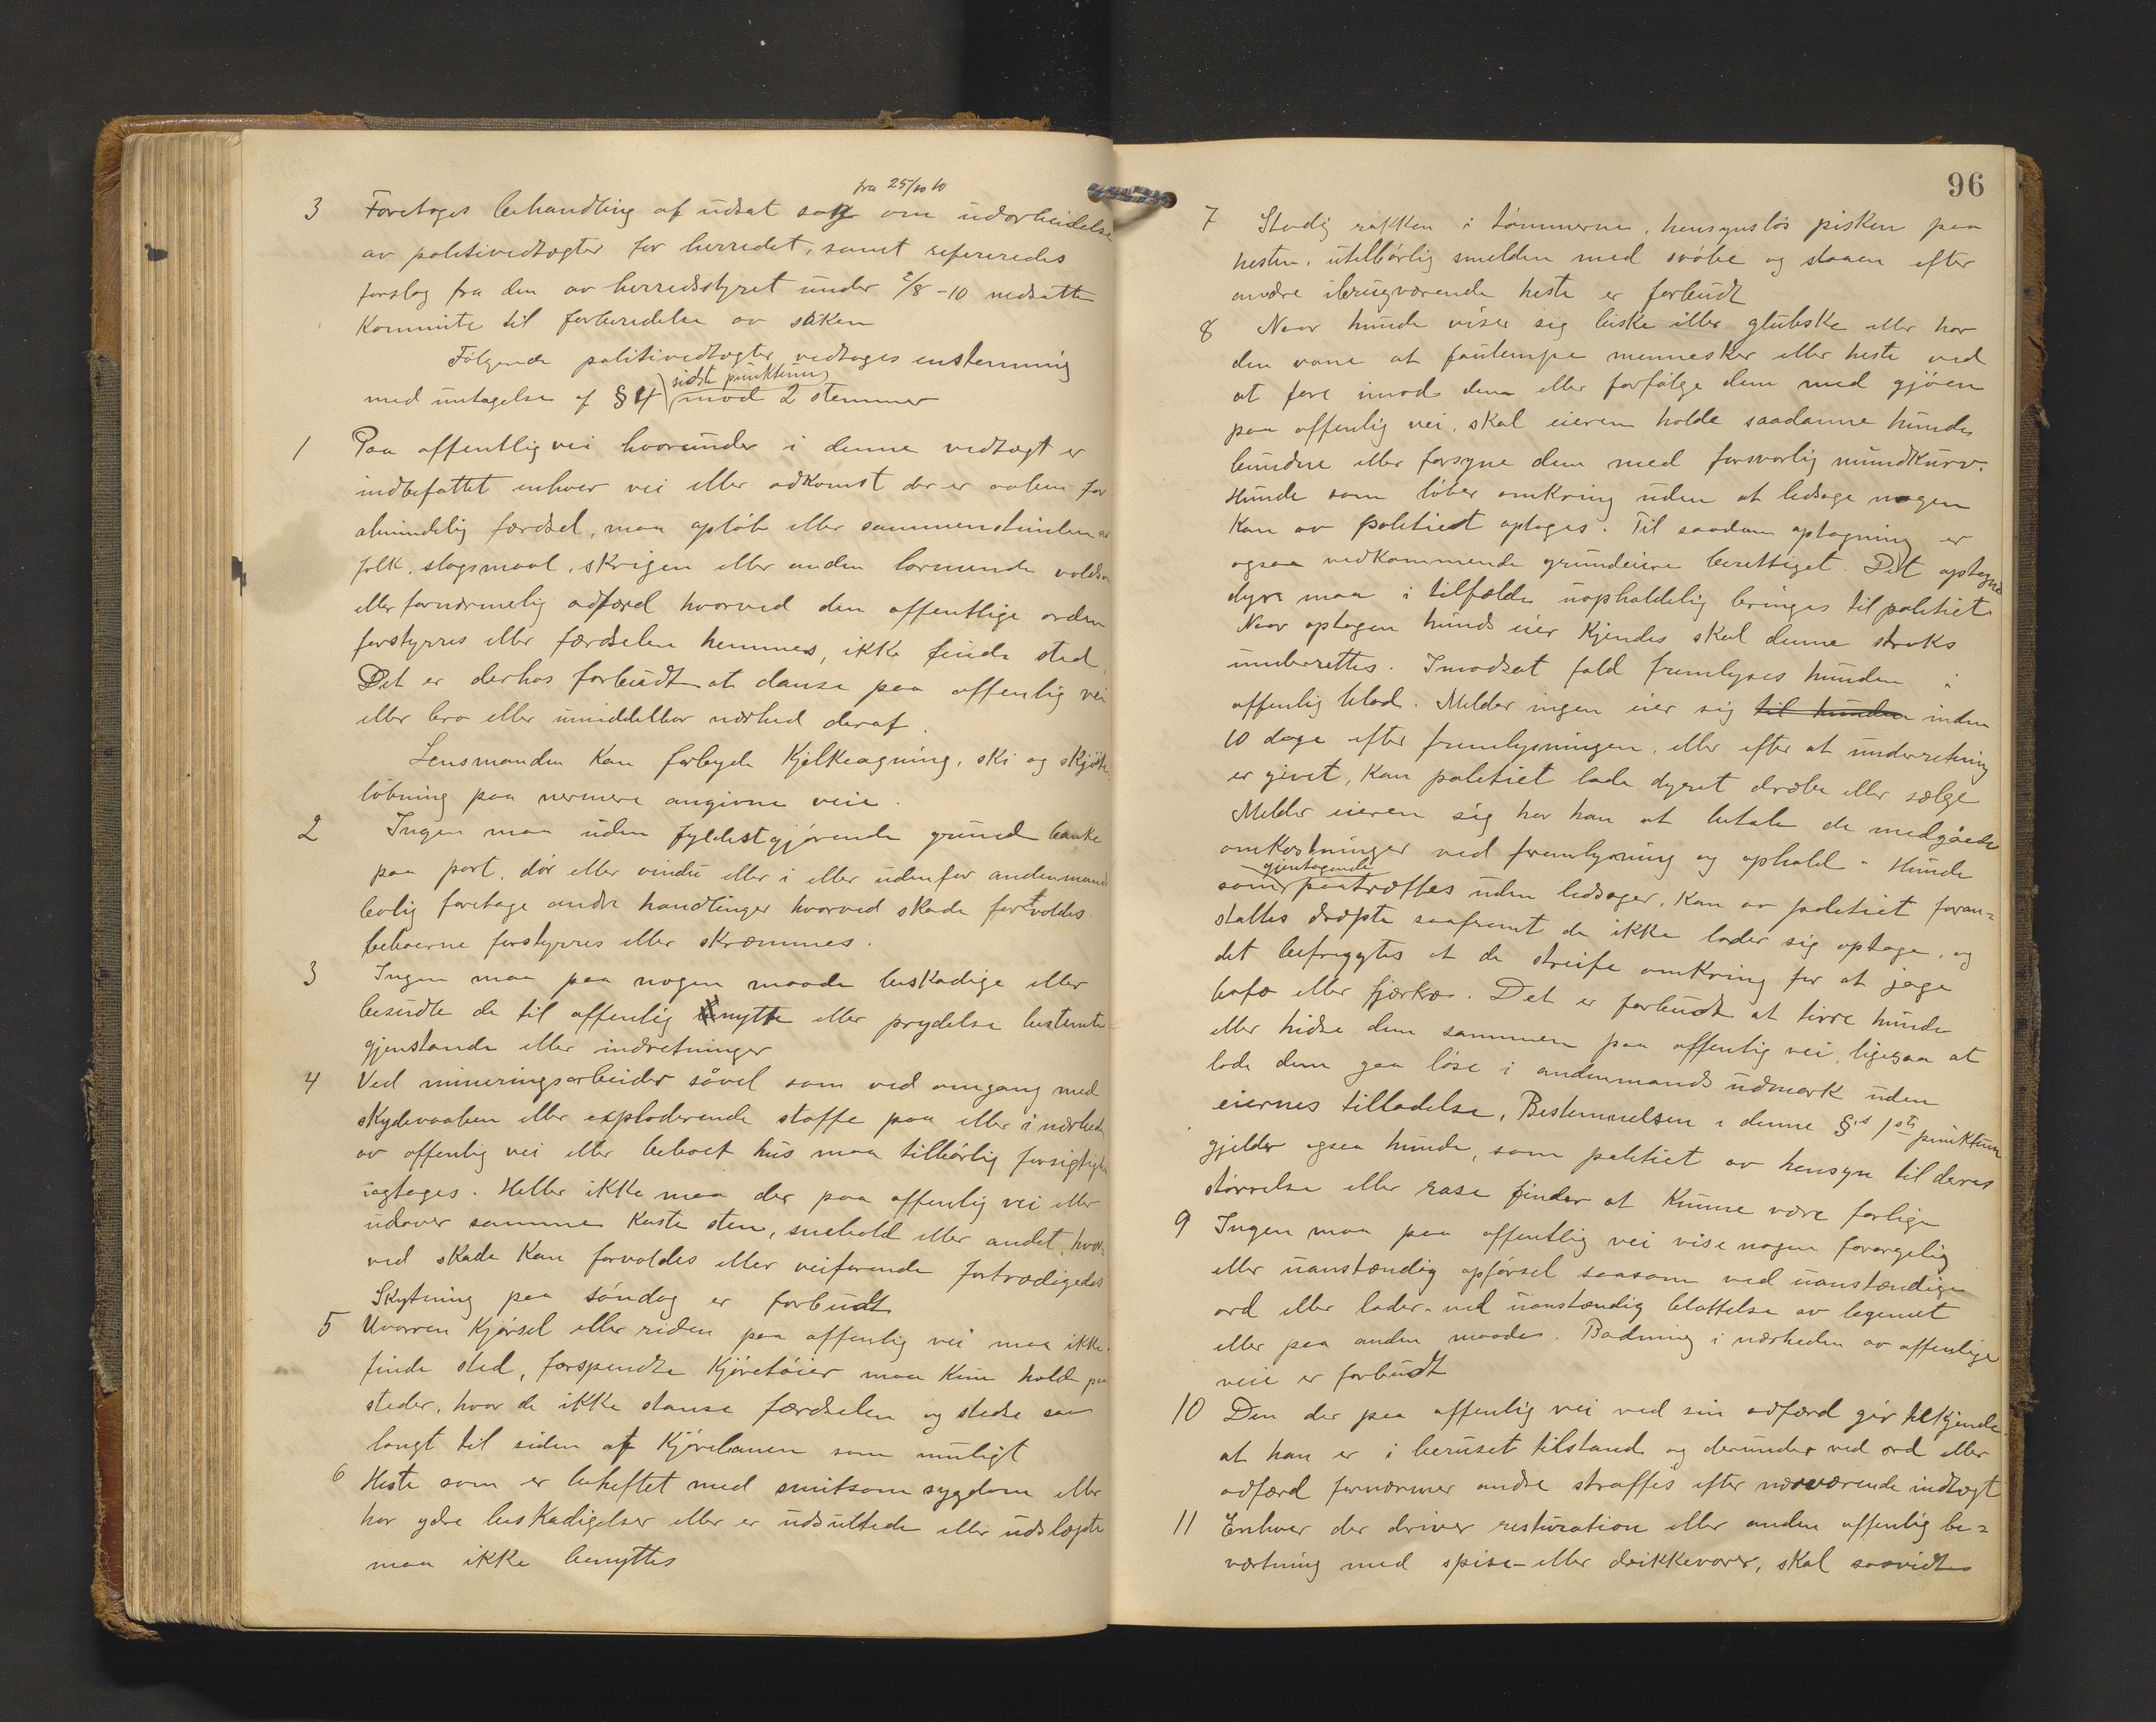 fra 25/10 10
3 Foretoges behandling af udsat sag om udarbeidelse
av politivedtægter for herredet, samt refereredes
forslag fra den av herredsstyret under 2/8-10 nedsatte
Kommite til forberedelse av saken
Følgende politivedtægter vedtoges enstemmig
sidste punktum
med untagelse af § 4 mod 2 stemmer
1 Paa offentlig vei hvorunder i denne vedtægt er
indbefattet enhver vei eller adkomst der er aaben for
almindelig færdsel, maa opløb eller sammenstimlen av
folk, slagsmaal, skrigen eller anden larmende voldsom
eller fornærmelig adfærd hvorved den offentlige orden
forstyrres eller færdselen hemmes, ikke finde sted.
Det er derhos forbudt at danse paa offenlig vei
eller bro eller umiddelbar nærhed deraf.
Lensmanden Kan forbyde Kjelkeagning, ski og skjøite
løbning paa nermere angivne veie.
2 Ingen maa uden fyldestgjørende grund banke
paa port, dør eller vindu eller i eller udenfor andenmands
bolig foretage andre handlinger hvorved skade forvoldes
beboerne forstyrres eller skræmmes.
3 Ingen maa paa nogen maade beskadige eller
besudle de til offenlig nytte eller prydelse bestemte
gjenstande eller indretninger
4 Ved mineringsarbeider såvel som ved omgang med
skydevaaben eller exploderende stoffe paa eller i nærheden
av offenlig vei eller beboet hus maa tilbørlig forsigtighed
iagtages. Heller ikke maa der paa offenlig vei eller
udover samme Kaste sten, snebold eller andet, hvor-
ved skade Kan forvoldes eller veifarende fortrædiges
Skytning paa søndag er forbudt
5 Uvorren Kjørsel eller riden paa offenlig vei maa ikke
finde sted, forspendte Kjøretøier maa Kun holde paa
steder, hvor de ikke stanse færdselen og stedse saa
langt til siden af Kjørebanen som muligt
6 Heste som er beheftet med smitsom sygdom eller
har ydre beskadigelser eller er udsultede eller udslæpte
maa ikke benyttes
96
7 Stadig rykken i tømmerne, hensynsløs pisken paa
hesten, utilbørlig smelden med svøbe og slaaen efter
andre ibrugværende heste er forbudt
8 Naar hunde viser sig biske eller glubske eller har
den vane at forulempe mennesker eller heste ved
at fare imod dem eller forfølge dem med gjøen
paa offenlig vei, skal eieren holde saadanne hunde
bundne eller forsyne dem med forsvarlig mundkurv.
Hunde som løber omkring uden at ledsage nogen
Kan av politiet optages. Til saadan optagning er
ogsaa vedkommende grundeiere berettiget. Det optagne
dyre maa i tilfælde uopholdelig bringes til politiet.
Naar optagen hunds eier Kjendes skal denne straks
underrettes. Imodsat fald fremlyses hunden i
offenlig blad. Melder ingen eier sig til hunden inden
10 dage efter fremlysningen, eller efter at underretning
er givet, Kan politiet lade dyret dræbe eller sælge
Melder eieren sig har han at betale de medgåede
omkostninger ved fremlysning og ophold. Hunde
gjentagende
som paatræffes uden ledsager, Kan av politiet foran-
staltes dræpte saafremt de ikke lader sig optage, og
det befrygtes at de streife omkring for at jage
bufæ eller fjærkræ. Det er forbudt at tirre hunde
eller hidse dem sammen paa offenlig vei, ligesaa at
lade dem gaa løse i andenmands udmark uden
eiernes tilladelse. Bestemmelsen i denne §'s 1ste punktum
gjelder ogsaa hunde, som politiet av hensyn til deres
størrelse eller rase finder at Kunne være farlige
9 Ingen maa paa offentlig vei vise nogen forargelig
eller uanstændig opførsel saasom ved uanstændige
ord eller lader, ved uanstændig blottelse av legemet
eller paa anden maade. Badning i nærheden av offenlige
veie er forbudt
10 Den der paa offenlig vei ved sin adfærd gir tilkjende
at han er i beruset tilstand og derunder ved ord eller
adfærd fornærmer andre straffes efter nærværende vedtægt
11 Enhver der driver resturation eller anden offenlig be-
værtning med spise- eller drikkevarer, skal saavidt